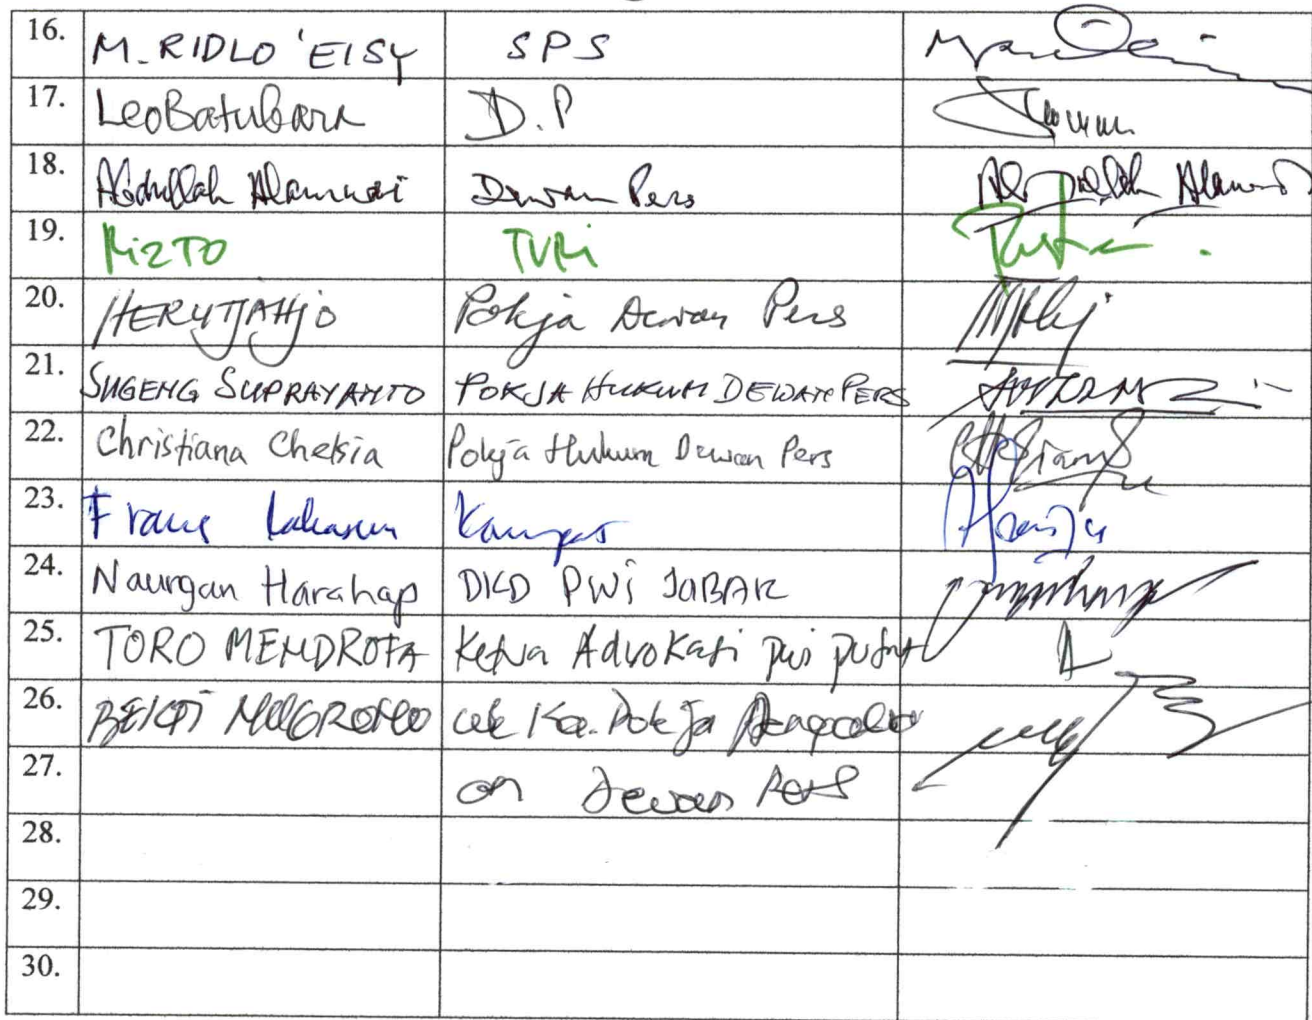 16. M. RIDLO 'EISY SPS
17. Leo Batubara D.P
18. Abdullah Alamudi Dewan Pers Abdullah Alamudi
19. TVRi
20. HERUTJAHJO Pokja Dewan Pers
21. SUGENG SUPRAYANTO POKJA HUKUM DEWAN PERS
22. Christiana Chelsia Pokja Hukum Dewan Pers
23. Frans Lakaseru Kompas
24. Naungan Harahap DKD PWI JABAR
25. TORO MENDROFA Ketua Advokasi
26. BEKTI NUGROHO Ka. Pokja
27. Dewan Pers
28.
29.
30.